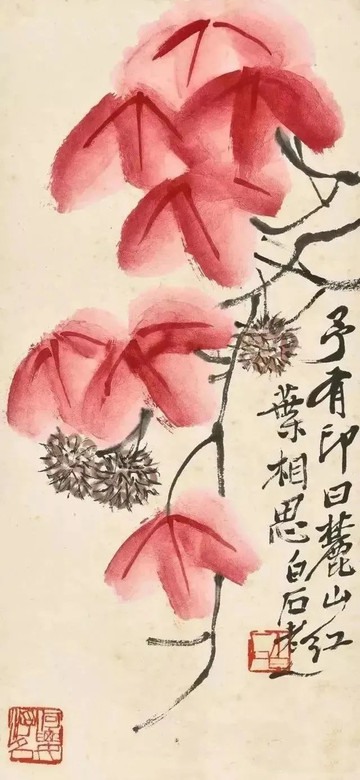 予有印曰麓山红
葉相思白石老人